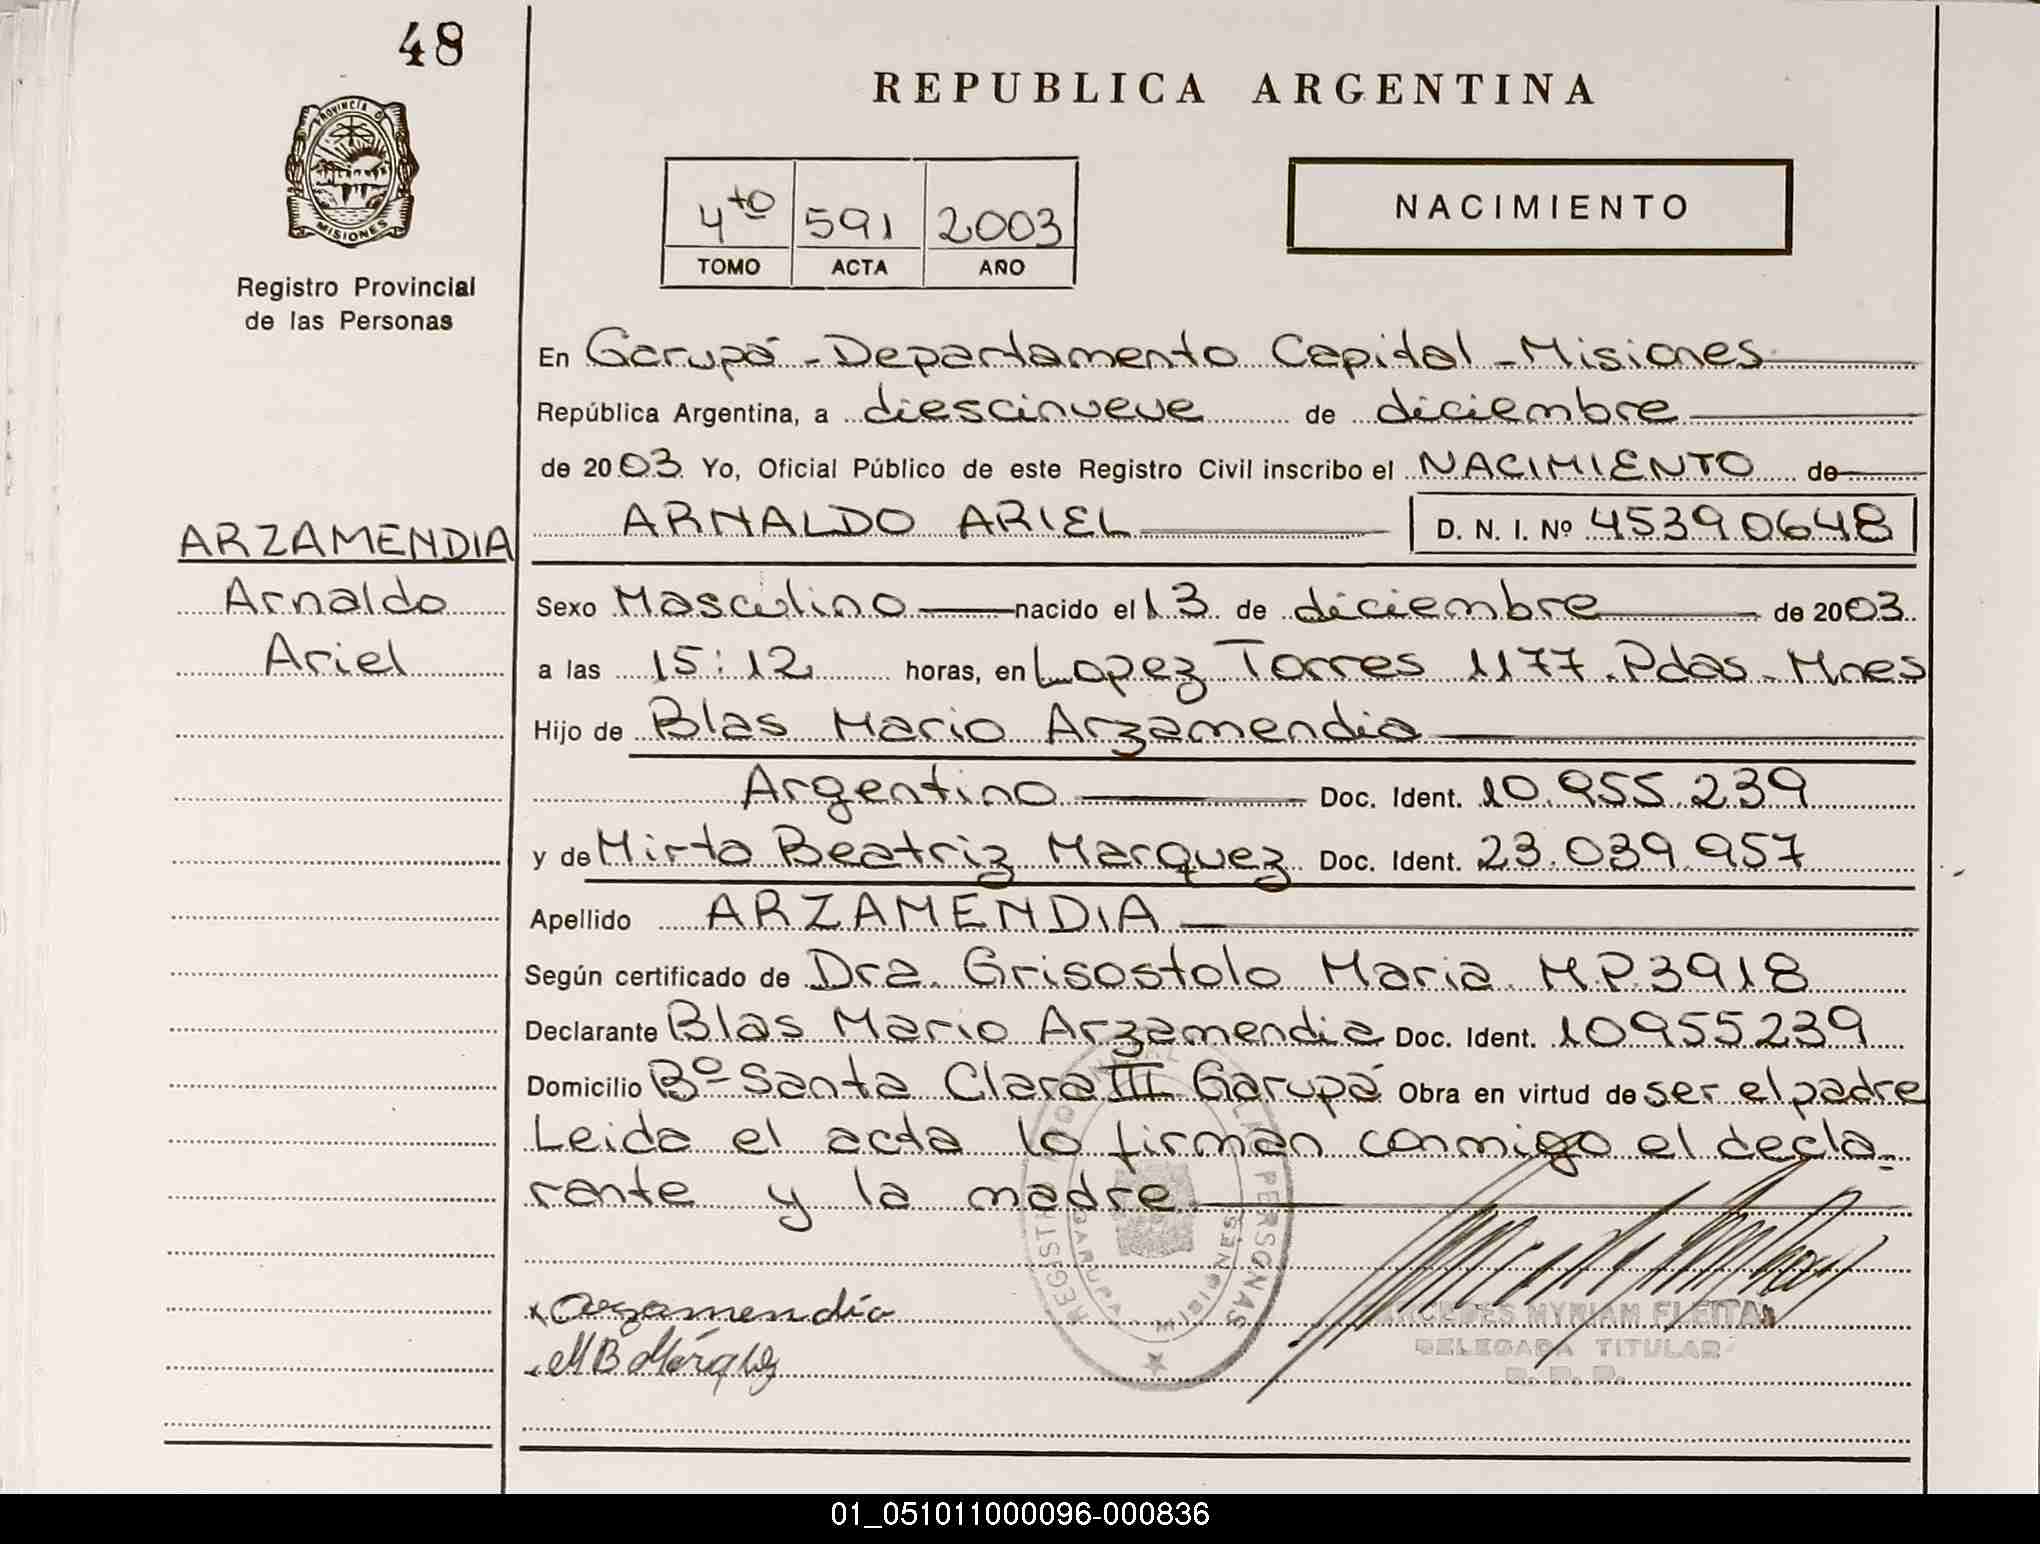 48
REPUBLICA ARGENTINA
PROVINCIA DE
MISIONES
4to 591 2003
TOMO ACTA AÑO
NACIMIENTO
Registro Provincial
de las Personas
En Garupá - Departamento Capital - Misiones
República Argentina, a diescinueve de diciembre
de 2003 Yo, Oficial Público de este Registro Civil inscribo el NACIMIENTO de
ARNALDO ARIEL D. N. I. Nº 45390648
ARZAMENDIA
Arnaldo
Ariel
Sexo Masculino nacido el 13 de diciembre de 2003
a las 15:12 horas, en Lopez Torres 1177. Pdas - Mnes
Hijo de Blas Mario Arzamendia
Argentino Doc. Ident. 10.955.239
y de Mirta Beatriz Marquez Doc. Ident. 23.039.957
Apellido ARZAMENDIA
Según certificado de Dra. Grisostolo Maria M.P. 3918
Declarante Blas Mario Arzamendia Doc. Ident. 10955239
Domicilio Bº Santa Clara III Garupá Obra en virtud de ser el padre
Leida el acta lo firman conmigo el decla-
rante y la madre
REGISTRO PROVINCIAL DE LAS PERSONAS
GARUPA - MISIONES
x Arzamendia
MB Márquez
MERCEDES MYRIAM FLEITAS
DELEGADA TITULAR
R. P. P.
01_051011000096-000836